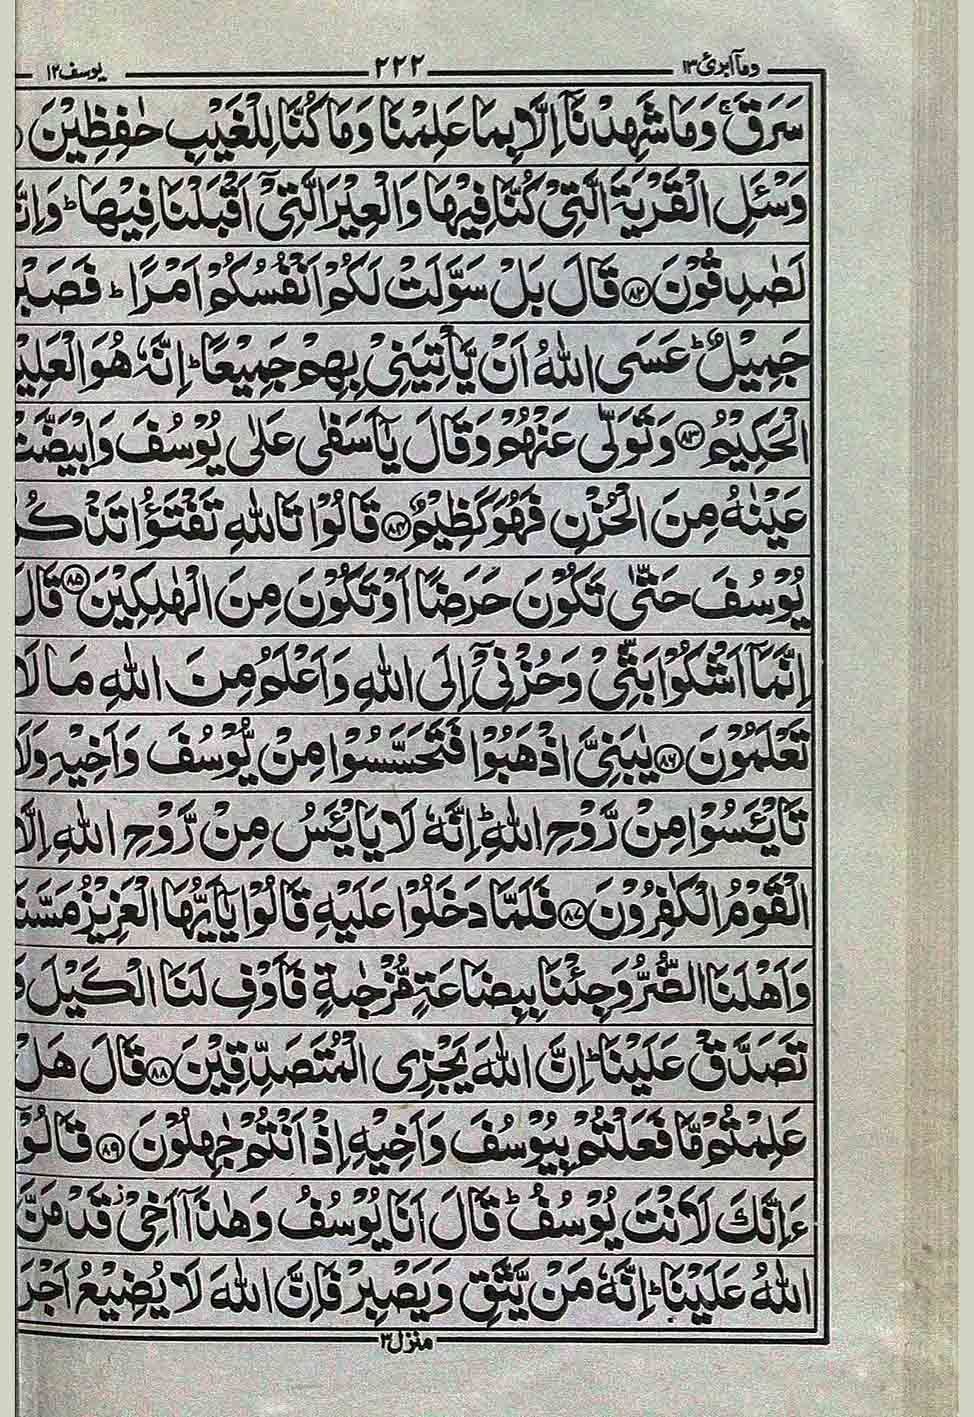 وماۤ ابرئ ١٣
٢٢٢
يوسف ١٢
سَرَقَ ۚ وَمَا شَهِدْنَاۤ اِلَّا بِمَا عَلِمْنَا وَمَا كُنَّا لِلْغَيْبِ حٰفِظِيْنَ
وَسْـَٔلِ الْقَرْيَةَ الَّتِيْ كُنَّا فِيْهَا وَالْعِيْرَ الَّتِيْۤ اَقْبَلْنَا فِيْهَا ؕ وَاِنَّا
لَصٰدِقُوْنَ ٨٢ قَالَ بَلْ سَوَّلَتْ لَكُمْ اَنْفُسُكُمْ اَمْرًا ؕ فَصَبْرٌ
جَمِيْلٌ ؕ عَسَى اللّٰهُ اَنْ يَّاْتِيَنِيْ بِهِمْ جَمِيْعًا ؕ اِنَّهٗ هُوَ الْعَلِيْمُ
الْحَكِيْمُ ٨٣ وَتَوَلّٰى عَنْهُمْ وَقَالَ يٰۤاَسَفٰى عَلٰى يُوْسُفَ وَابْيَضَّتْ
عَيْنٰهُ مِنَ الْحُزْنِ فَهُوَ كَظِيْمٌ ٨٤ قَالُوْا تَاللّٰهِ تَفْتَؤُا تَذْكُرُ
يُوْسُفَ حَتّٰى تَكُوْنَ حَرَضًا اَوْ تَكُوْنَ مِنَ الْهٰلِكِيْنَ ٨٥ قَالَ
اِنَّمَاۤ اَشْكُوْا بَثِّيْ وَحُزْنِيْۤ اِلَى اللّٰهِ وَاَعْلَمُ مِنَ اللّٰهِ مَا لَا
تَعْلَمُوْنَ ٨٦ يٰبَنِيَّ اذْهَبُوْا فَتَحَسَّسُوْا مِنْ يُّوْسُفَ وَاَخِيْهِ وَلَا
تَايْـَٔسُوْا مِنْ رَّوْحِ اللّٰهِ ؕ اِنَّهٗ لَا يَايْـَٔسُ مِنْ رَّوْحِ اللّٰهِ اِلَّا
الْقَوْمُ الْكٰفِرُوْنَ ٨٧ فَلَمَّا دَخَلُوْا عَلَيْهِ قَالُوْا يٰۤاَيُّهَا الْعَزِيْزُ مَسَّنَا
وَاَهْلَنَا الضُّرُّ وَجِئْنَا بِبِضَاعَةٍ مُّزْجٰىةٍ فَاَوْفِ لَنَا الْكَيْلَ وَ
تَصَدَّقْ عَلَيْنَا ؕ اِنَّ اللّٰهَ يَجْزِى الْمُتَصَدِّقِيْنَ ٨٨ قَالَ هَلْ
عَلِمْتُمْ مَّا فَعَلْتُمْ بِيُوْسُفَ وَاَخِيْهِ اِذْ اَنْتُمْ جٰهِلُوْنَ ٨٩ قَالُوْۤا
ءَاِنَّكَ لَاَنْتَ يُوْسُفُ ؕ قَالَ اَنَا يُوْسُفُ وَهٰذَاۤ اَخِيْ ؗ قَدْ مَنَّ
اللّٰهُ عَلَيْنَا ؕ اِنَّهٗ مَنْ يَّتَّقِ وَيَصْبِرْ فَاِنَّ اللّٰهَ لَا يُضِيْعُ اَجْرَ
منزل ٣